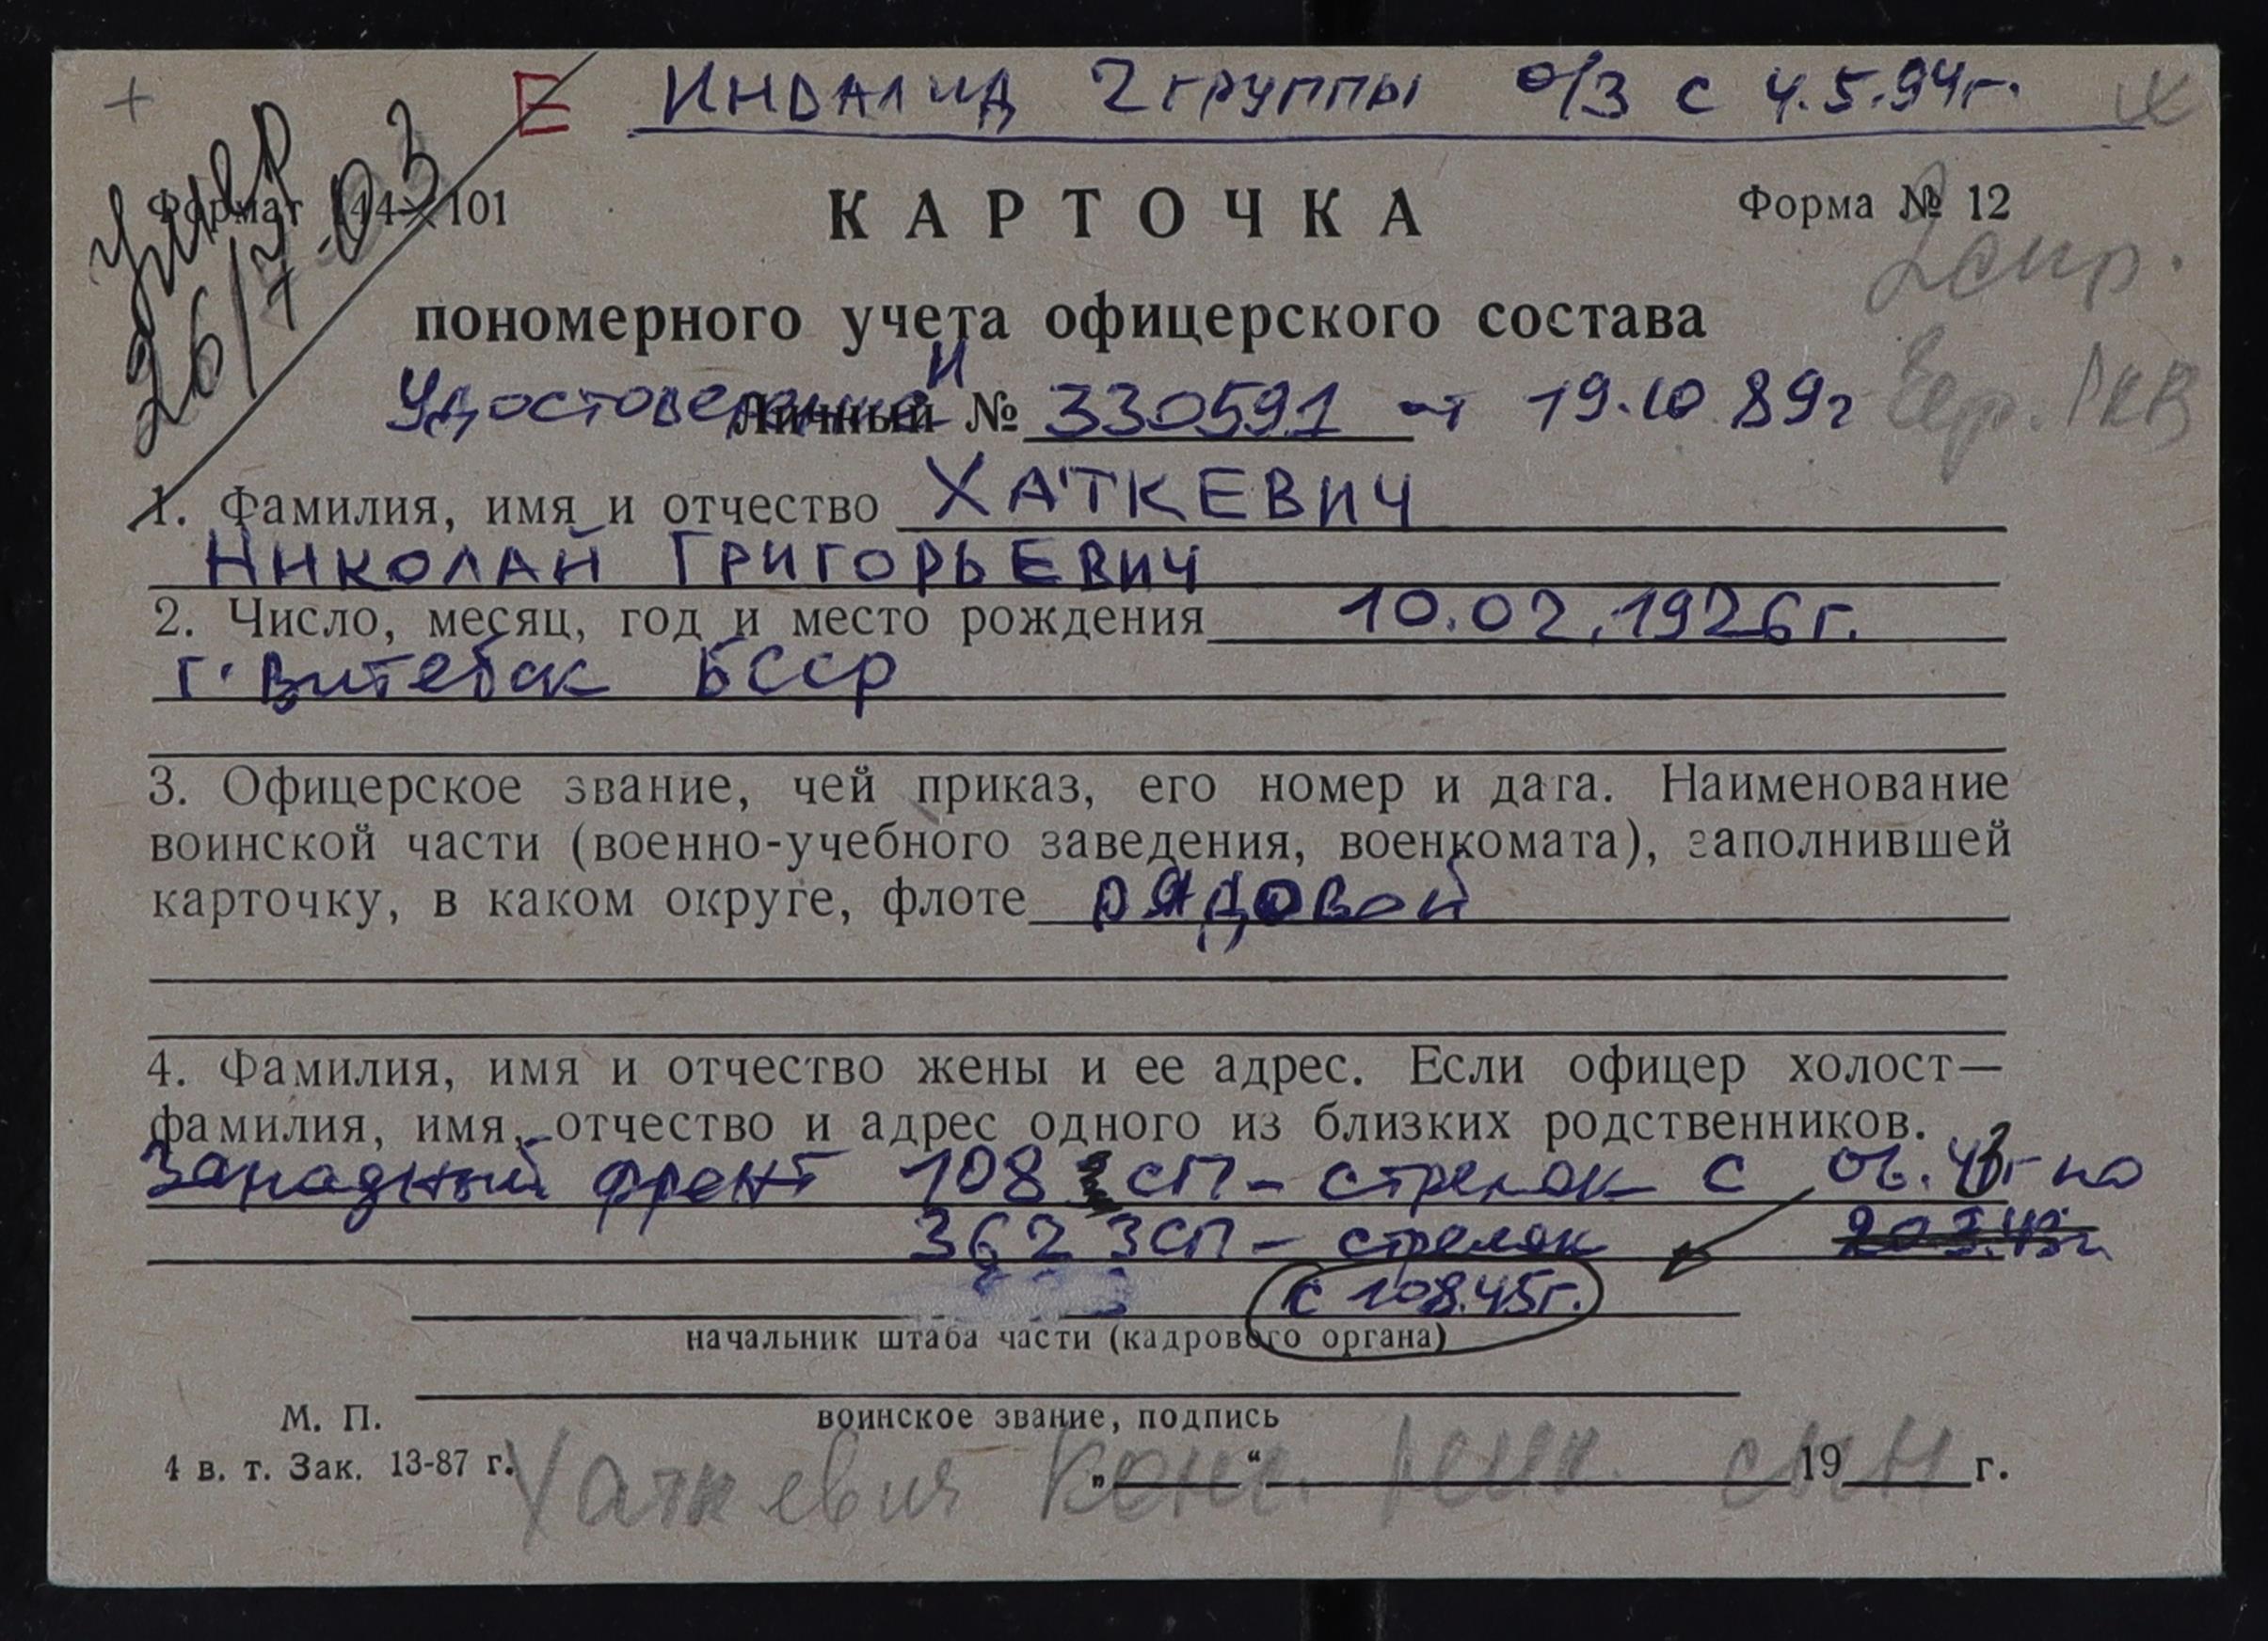 + Е ИНВАЛИД 2 группы о/з с 4.5.94г.
умер
26/7-03
Формат 144×101 КАРТОЧКА Форма № 12
пономерного учета офицерского состава
Удостоверение Личный № 330591 от 19.10 89г
1. Фамилия, имя и отчество ХАТКЕВИЧ
НИКОЛАЙ ГРИГОРЬЕВИЧ
2. Число, месяц, год и место рождения 10.02.1926г.
г. Витебск БССР
3. Офицерское звание, чей приказ, его номер и дата. Наименование
воинской части (военно-учебного заведения, военкомата), заполнившей
карточку, в каком округе, флоте рядовой
4. Фамилия, имя и отчество жены и ее адрес. Если офицер холост—
фамилия, имя, отчество и адрес одного из близких родственников.
Западный фронт 108 сп - стрелок с 06.43г по
362 ЗСП - стрелок
с 10 8.45г.
начальник штаба части (кадрового органа)
М. П. воинское звание, подпись
4 в. т. Зак. 13-87 г. „ “ 19 г.
Хаткевич сын